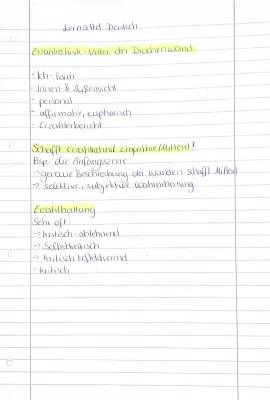 Lernzettel Deutsch
Erzähltechnik - Unter der Drachenwand
- Ich-Form
- Innen- & Außensicht
- personal
- affirmativ, euphorisch
- Erzählerbericht
Schafft Erzähltechnik Empathie/Mitleid?
Bsp. die Anfangsszene
→ genaue Beschreibung der Wunden schafft Mitleid
→ selektive, subjektive Wahrnehmung
Erzählhaltung
Sehr oft:
→ kritisch-ablehnend
→ Selbstkritisch
→ kritisch reflektierend
- kritisch